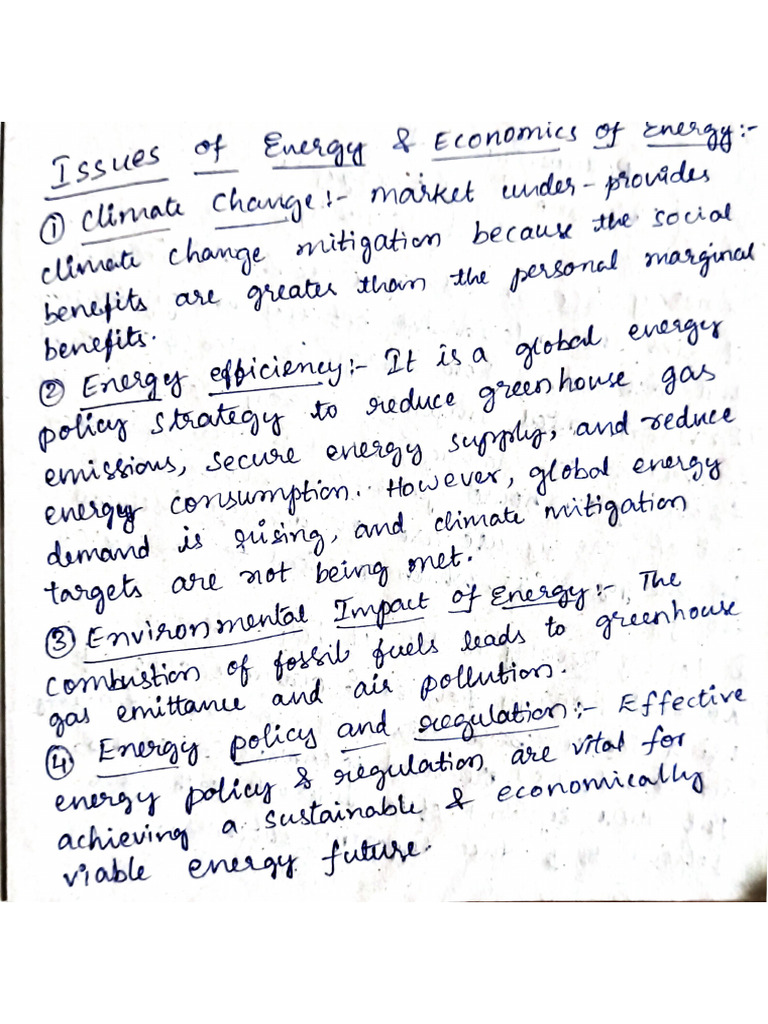 Issues of Energy & Economics of Energy:-
① Climate Change:- market under-provides
climate change mitigation because the social
benefits are greater than the personal marginal
benefits.
② Energy efficiency:- It is a global energy
policy strategy to reduce greenhouse gas
emissions, secure energy supply, and reduce
energy consumption. However, global energy
demand is rising, and climate mitigation
targets are not being met.
③ Environmental Impact of Energy:- The
combustion of fossil fuels leads to greenhouse
gas emittance and air pollution.
④ Energy policy and regulation:- Effective
energy policy & regulation are vital for
achieving a sustainable & economically
viable energy future.